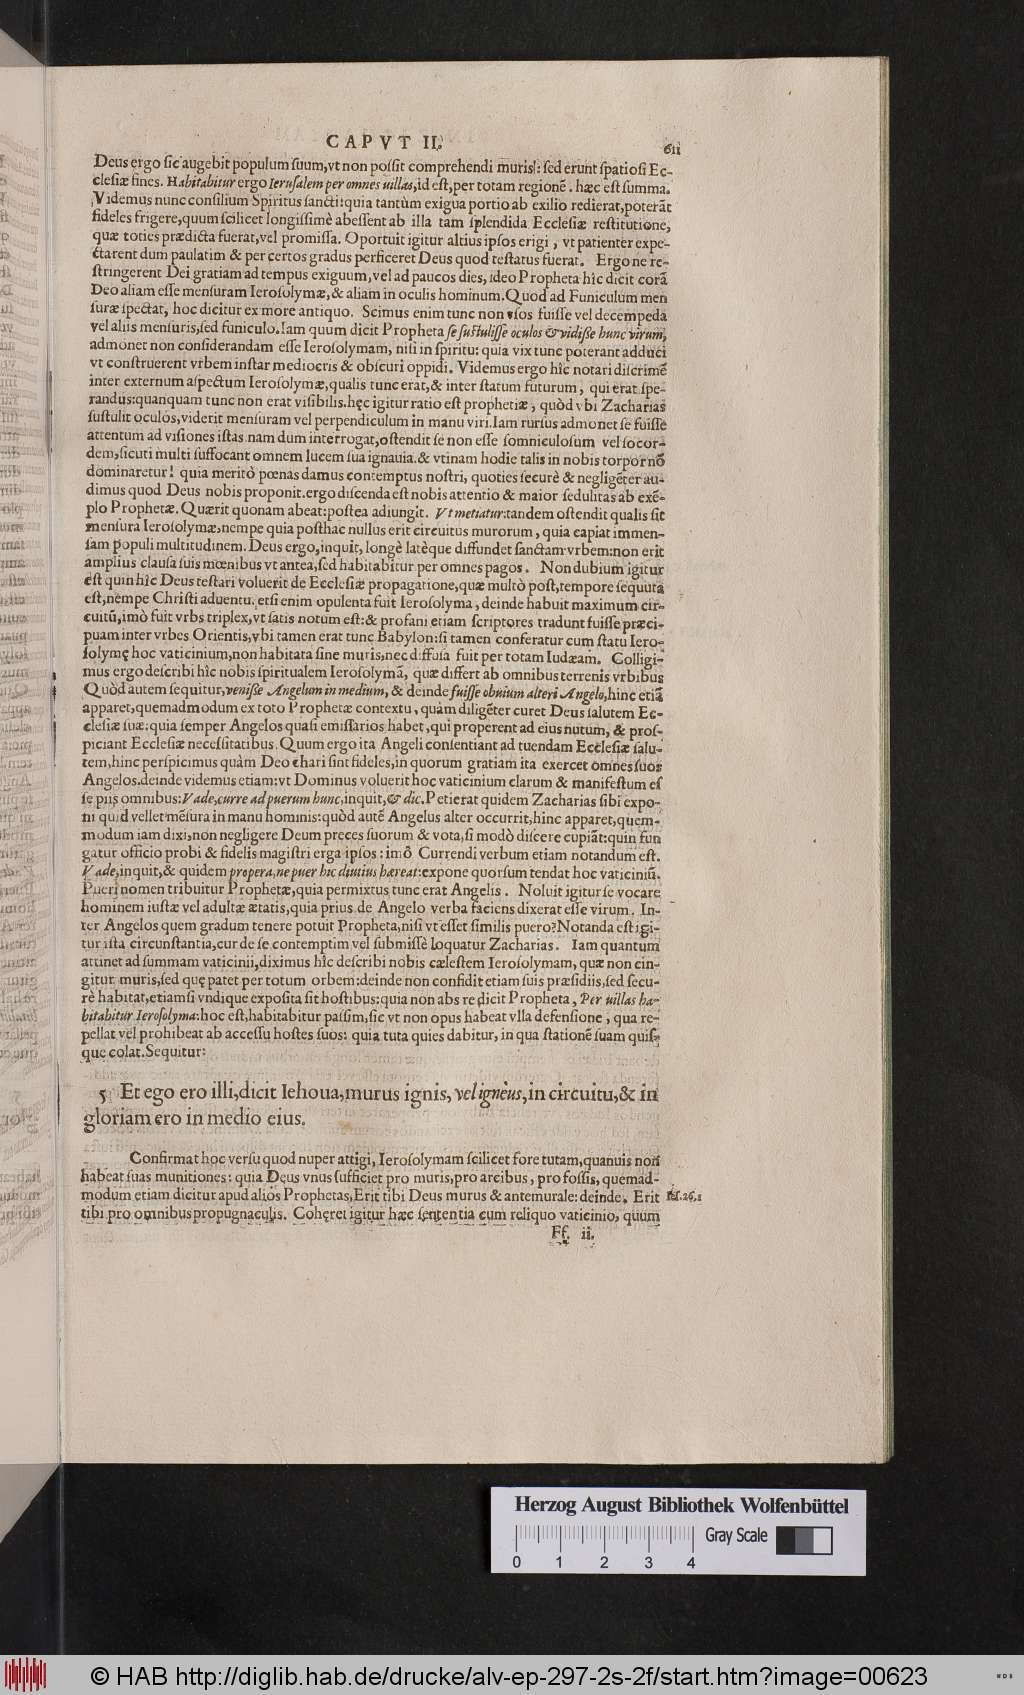 CAPVT II.
611
Deus ergo sic augebit populum suum, vt non possit comprehendi muris: sed erunt spatiosi Ec-
clesiæ fines. Habitabitur ergo Ierusalem per omnes uillas, id est, per totam regionē. hæc est summa.
Videmus nunc consilium Spiritus sancti: quia tantùm exigua portio ab exilio redierat, poterāt
fideles frigere, quum scilicet longissimè abessent ab illa tam splendida Ecclesiæ restitutione,
quæ toties prædicta fuerat, vel promissa. Oportuit igitur altius ipsos erigi, vt patienter expe-
ctarent dum paulatim & per certos gradus perficeret Deus quod testatus fuerat. Ergo ne re-
stringerent Dei gratiam ad tempus exiguum, vel ad paucos dies, ideo Propheta hîc dicit corā
Deo aliam esse mensuram Ierosolymæ, & aliam in oculis hominum. Quod ad Funiculum men
suræ spectat, hoc dicitur ex more antiquo. Scimus enim tunc non vsos fuisse vel decempeda
vel aliis mensuris, sed funiculo. Iam quum dicit Propheta se sustulisse oculos & vidisse hunc virum,
admonet non considerandam esse Ierosolymam, nisi in spiritu: quia vix tunc poterant adduci
vt construerent vrbem instar mediocris & obscuri oppidi. Videmus ergo hîc notari discrimē
inter externum aspectum Ierosolymæ, qualis tunc erat, & inter statum futurum, qui erat spe-
randus: quanquam tunc non erat visibilis. hęc igitur ratio est prophetiæ, quòd vbi Zacharias
sustulit oculos, viderit mensuram vel perpendiculum in manu viri. Iam rursus admonet se fuisse
attentum ad visiones istas. nam dum interrogat, ostendit se non esse somniculosum vel socor-
dem, sicuti multi suffocant omnem lucem sua ignauia. & vtinam hodie talis in nobis torpor nō
dominaretur! quia meritò pœnas damus contemptus nostri, quoties securè & negligēter au-
dimus quod Deus nobis proponit. ergo discenda est nobis attentio & maior sedulitas ab exē-
plo Prophetæ. Quærit quonam abeat: postea adiungit. Vt metiatur: tandem ostendit qualis sit
mensura Ierosolymæ, nempe quia posthac nullus erit circuitus murorum, quia capiat immen-
sam populi multitudinem. Deus ergo, inquit, longè latèque diffundet sanctam vrbem: non erit
amplius clausa suis mœnibus vt antea, sed habitabitur per omnes pagos. Non dubium igitur
est quin hîc Deus testari voluerit de Ecclesiæ propagatione, quæ multò post, tempore sequuta
est, nempe Christi aduentu. etsi enim opulenta fuit Ierosolyma, deinde habuit maximum cir-
cuitū, imò fuit vrbs triplex, vt satis notum est: & profani etiam scriptores tradunt fuisse præci-
puam inter vrbes Orientis, vbi tamen erat tunc Babylon: si tamen conferatur cum statu Iero-
solymę hoc vaticinium, non habitata sine muris, nec diffusa fuit per totam Iudæam. Colligi-
mus ergo describi hîc nobis spiritualem Ierosolymā, quæ differt ab omnibus terrenis vrbibus
Quòd autem sequitur, venisse Angelum in medium, & deinde fuisse obuium alteri Angelo, hinc etiā
apparet, quemadmodum ex toto Prophetæ contextu, quàm diligēter curet Deus salutem Ec-
clesiæ suæ: quia semper Angelos quasi emissarios habet, qui properent ad eius nutum, & pros-
piciant Ecclesiæ necessitatibus. Quum ergo ita Angeli consentiant ad tuendam Ecclesiæ salu-
tem, hinc perspicimus quàm Deo chari sint fideles, in quorum gratiam ita exercet omnes suos
Angelos. deinde videmus etiam: vt Dominus voluerit hoc vaticinium clarum & manifestum es
se piis omnibus: Vade, curre ad puerum hunc, inquit, & dic. Petierat quidem Zacharias sibi expo-
ni quid vellet mēsura in manu hominis: quòd autē Angelus alter occurrit, hinc apparet, quem-
modum iam dixi, non negligere Deum preces suorum & vota, si modò discere cupiāt: quin fun
gatur officio probi & fidelis magistri erga ipsos: imò Currendi verbum etiam notandum est.
Vade, inquit, & quidem propera, ne puer hic diutius hæreat: expone quorsum tendat hoc vaticiniū.
Pueri nomen tribuitur Prophetæ, quia permixtus tunc erat Angelis. Noluit igitur se vocare
hominem iustæ vel adultæ ætatis, quia prius de Angelo verba faciens dixerat esse virum. In-
ter Angelos quem gradum tenere potuit Propheta, nisi vt esset similis puero? Notanda est igi-
tur ista circunstantia, cur de se contemptim vel submissè loquatur Zacharias. Iam quantum
attinet ad summam vaticinii, diximus hîc describi nobis cælestem Ierosolymam, quæ non cin-
gitur muris, sed quę patet per totum orbem: deinde non confidit etiam suis præsidiis, sed secu-
rè habitat, etiamsi vndique exposita sit hostibus: quia non abs re dicit Propheta, Per uillas ha-
bitabitur Ierosolyma: hoc est, habitabitur passim, sic vt non opus habeat vlla defensione, qua re-
pellat vel prohibeat ab accessu hostes suos: quia tuta quies dabitur, in qua stationē suam quis-
que colat. Sequitur:
5 Et ego ero illi, dicit Iehoua, murus ignis, vel igneus, in circuitu, & in
gloriam ero in medio eius.
Confirmat hoc versu quod nuper attigi, Ierosolymam scilicet fore tutam, quanuis non
habeat suas munitiones: quia Deus vnus sufficiet pro muris, pro arcibus, pro fossis, quemad-
modum etiam dicitur apud alios Prophetas, Erit tibi Deus murus & antemurale: deinde. Erit
Isa. 26,1
tibi pro omnibus propugnaculis. Cohęret igitur hæc sententia cum reliquo vaticinio, quum
Ff. ii.
Herzog August Bibliothek Wolfenbüttel
Gray Scale
0 1 2 3 4
© HAB http://diglib.hab.de/drucke/alv-ep-297-2s-2f/start.htm?image=00623